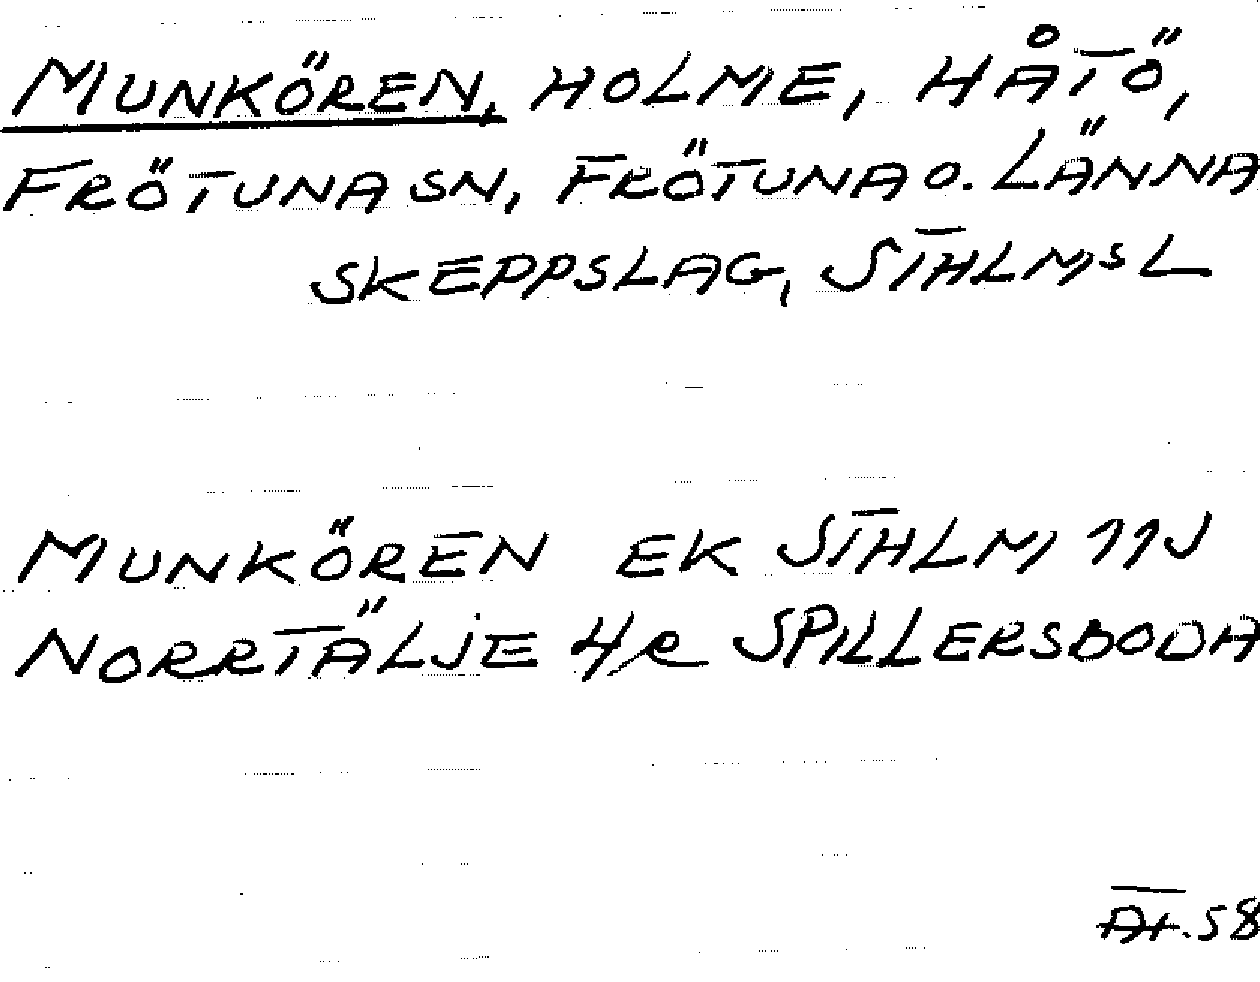 MUNKÖREN, HOLME, HÅTÖ,
FRÖTUNA SN, FRÖTUNA O. LÄNNA
SKEPPSLAG, STHLMS L
MUNKÖREN EK STHLM 11J
NORRTÄLJE SPILLERSBODA
58